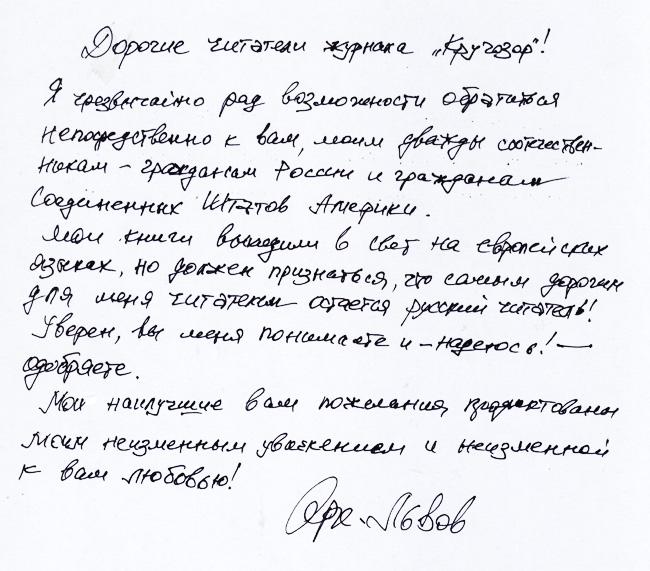 Дорогие читатели журнала „Кругозор"!
Я чрезвычайно рад возможности обратиться
непосредственно к вам, моим дважды соотечествен-
никам – гражданам России и гражданам
Соединенных Штатов Америки.
Мои книги выходили в свет на европейских
языках, но должен признаться, что самым дорогим
для меня читателем остается русский читатель!
Уверен, вы меня понимаете и – надеюсь! –
одобряете.
Мои наилучшие вам пожелания продиктованы
моим неизменным уважением и неизменной
к вам любовью!
Арк. Львов